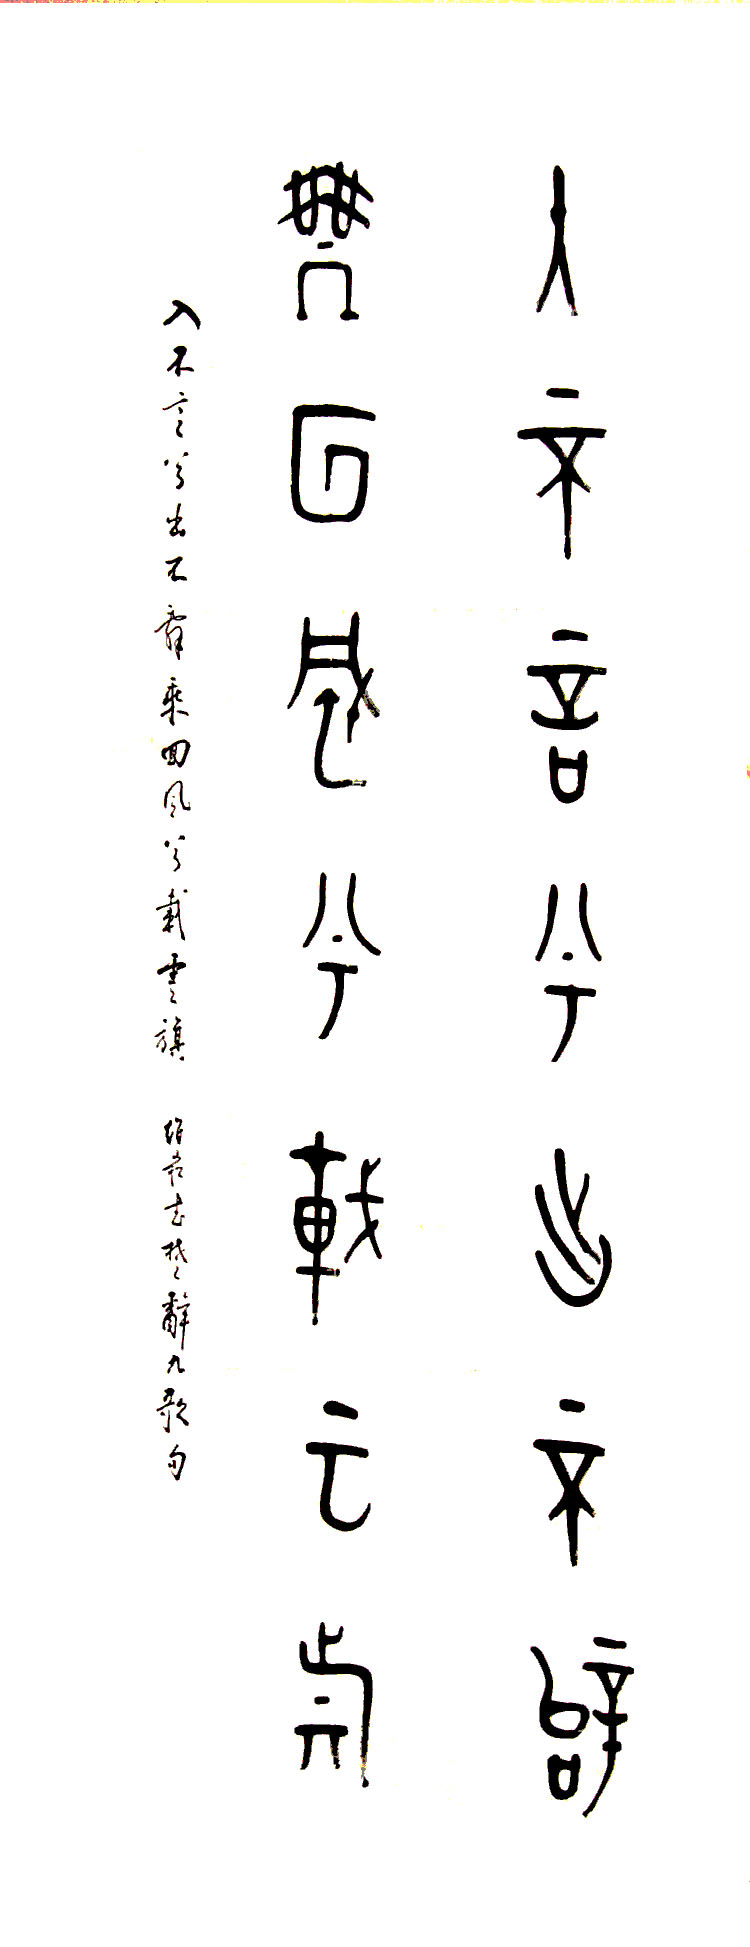 入不言兮出不辭
乘回風兮載雲旗
入不言兮出不辭乘回風兮載雲旗 楚辭九歌句